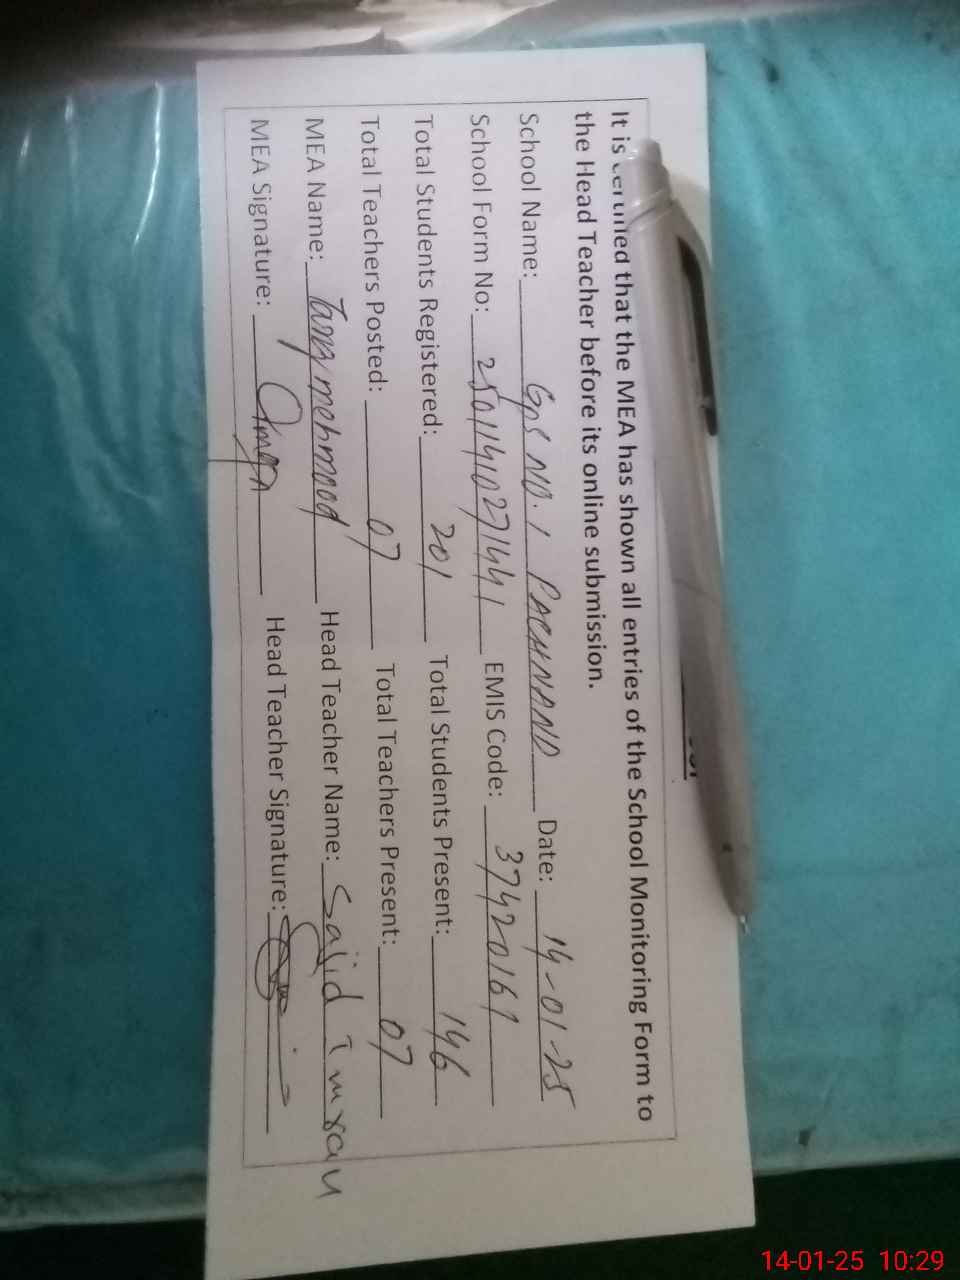 It is certified that the MEA has shown all entries of the School Monitoring Form to
the Head Teacher before its online submission.
School Name: GPS NO. 1 PACHNAND Date: 14-01-25
School Form No: 25011410271441 EMIS Code: 37420161
Total Students Registered: 201 Total Students Present: 146
Total Teachers Posted: 07 Total Teachers Present: 07
MEA Name: Tariq mehmood Head Teacher Name: Sajid Imran
MEA Signature: Head Teacher Signature:
14-01-25 10:29